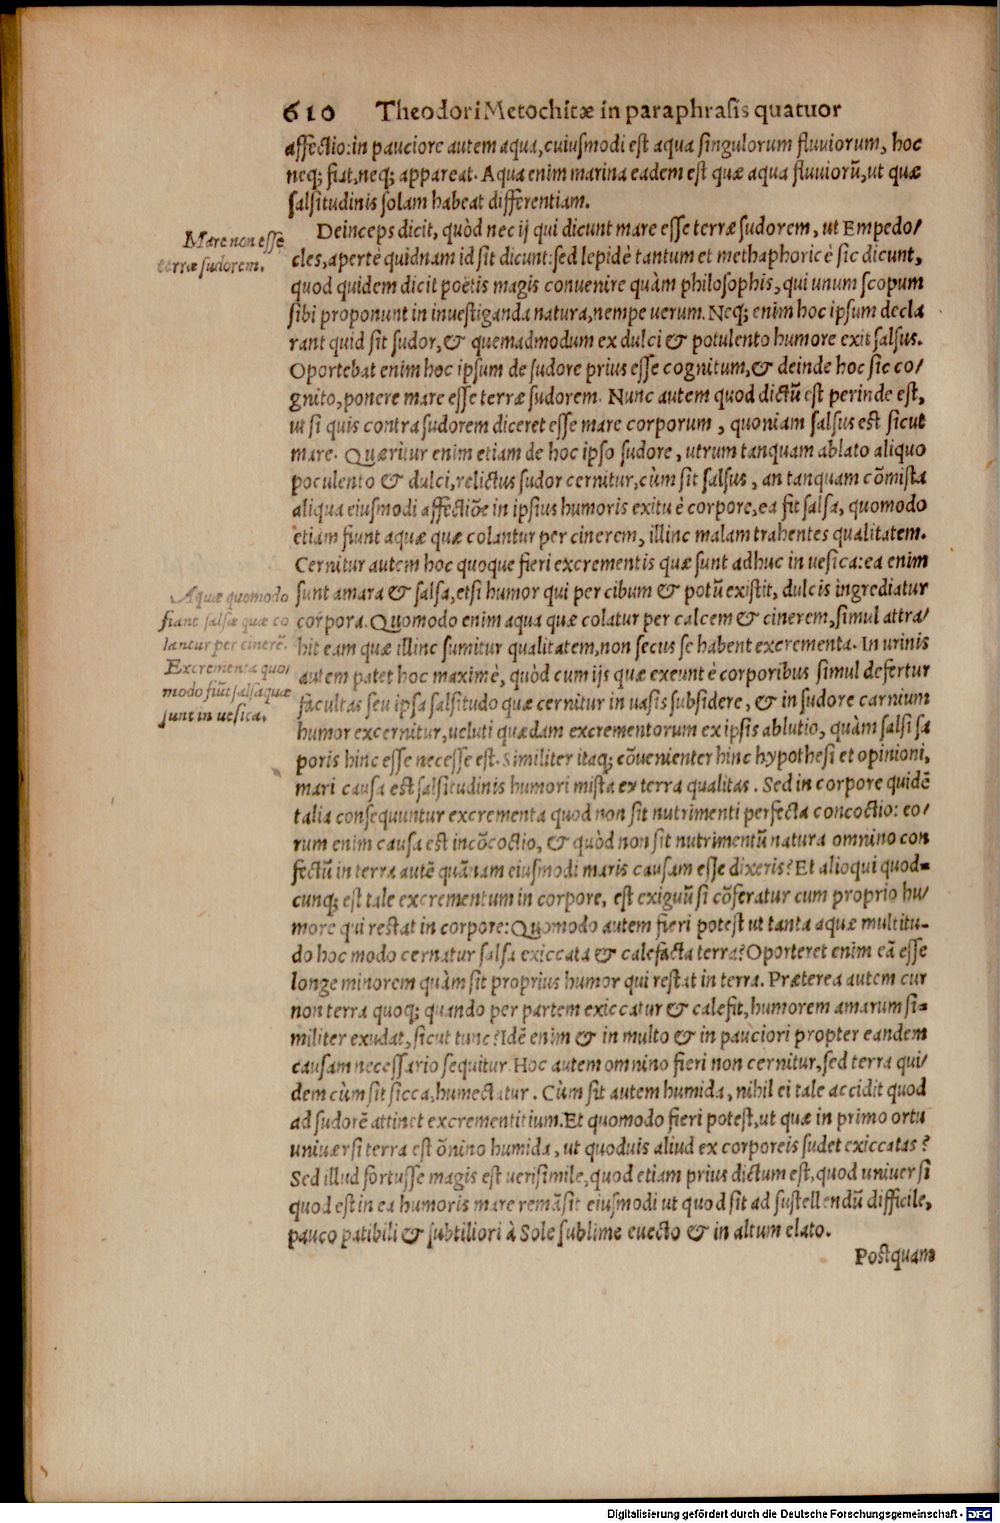 610 Theodori Metochitæ in paraphrasis quatuor
affectio: in pauciore autem aqua, cuiusmodi est aqua singulorum fluviorum, hoc
neq; fiat, neq; appareat. Aqua enim marina eadem est quæ aqua fluviorũ, ut quæ
salsitudinis solam habeat differentiam.
Mare non esse
terræ sudorem.
Deinceps dicit, quòd nec ij qui dicunt mare esse terræ sudorem, ut Empedo/
cles, apertè quidnam id sit dicunt: sed lepidè tantum et methaphoricè sic dicunt,
quod quidem dicit poëtis magis convenire quàm philosophis, qui unum scopum
sibi proponunt in investiganda natura, nempe verum. Neq; enim hoc ipsum decla
rant quid sit sudor, & quemadmodum ex dulci & potulento humore exit salsus.
Oportebat enim hoc ipsum de sudore prius esse cognitum, & deinde hoc sic co/
gnito, ponere mare esse terræ sudorem. Nunc autem quod dictũ est perinde est,
ut si quis contra sudorem diceret esse mare corporum, quoniam salsus est sicut
mare. Quæritur enim etiam de hoc ipso sudore, utrum tanquam ablato aliquo
poculento & dulci, relictus sudor cernitur, cùm sit salsus, an tanquam cõmista
aliqua eiusmodi affectiõe in ipsius humoris exitu è corpore, ea fit salsa, quomodo
etiam fiunt aquæ quæ colantur per cinerem, illinc malam trahentes qualitatem.
Cernitur autem hoc quoque fieri excrementis quæ sunt adhuc in uesica: ea enim
Aquæ quomodo
fiant salsæ quæ co
lantur per cinerẽ.
Excrementa quo/
modo fiũt salsa quæ
sunt in uesica.
sunt amara & salsa, etsi humor qui per cibum & potũ existit, dulcis ingrediatur
corpora. Quomodo enim aqua quæ colatur per calcem & cinerem, simul attra/
hit eam quæ illinc sumitur qualitatem, non secus se habent excrementa. In urinis
autem patet hoc maximè, quòd cum ijs quæ exeunt è corporibus simul defertur
facultas seu ipsa salsitudo quæ cernitur in uasis subsidere, & in sudore carnium
humor excernitur, ueluti quædam excrementorum ex ipsis ablutio, quàm salsi sa
poris hinc esse necesse est. Similiter itaq; cõuenienter hinc hypothesi et opinioni,
mari causa est salsitudinis humori mista ex terra qualitas. Sed in corpore quidẽ
talia consequuntur excrementa quod non sit nutrimenti perfecta concoctio: eo/
rum enim causa est incõcoctio, & quòd non sit nutrimentũ natura omnino con
fectũ in terra autẽ quãnam eiusmodi maris causam esse dixeris? Et alioqui quod=
cunq; est tale excrementum in corpore, est exiguũ si cõferatur cum proprio hu/
more qui restat in corpore: Quomodo autem fieri potest ut tanta aquæ multitu-
do hoc modo cernatur salsa exiccata & calefacta terra? Oporteret enim eã esse
longe minorem quàm sit proprius humor qui restat in terra. Præterea autem cur
non terra quoq; quando per partem exiccatur & calefit, humorem amarum si=
militer exudat, sicut tunc? Idẽ enim & in multo & in pauciori propter eandem
causam necessario sequitur. Hoc autem omnino fieri non cernitur, sed terra qui/
dem cùm sit sicca, humectatur. Cùm sit autem humida, nihil ei tale accidit quod
ad sudorẽ attinet excrementitium. Et quomodo fieri potest, ut quæ in primo ortu
univærsi terra est õnino humida, ut quoduis aliud ex corporeis sudet exiccatas?
Sed illud fortusse magis est uerisimile, quod etiam prius dictum est, quod universi
quod est in ea humoris mare remãsit eiusmodi ut quod sit ad sustellendũ difficile,
pauco patibili & subtiliori à Sole sublime euecto & in altum elato.
Postquam
Digitalisierung gefördert durch die Deutsche Forschungsgemeinschaft - DFG